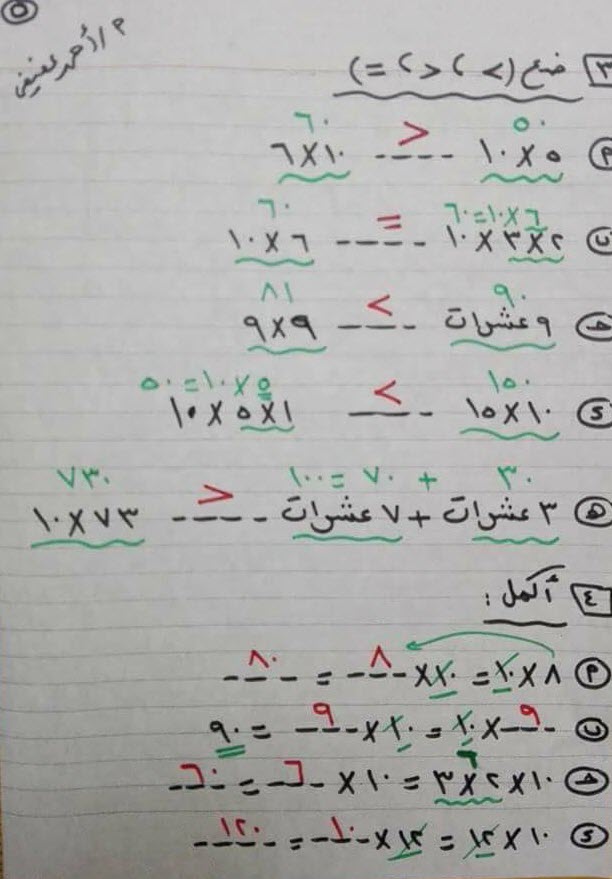 ٥
م/أحمد عفيفي
٣ ضع (> ، < ، =)
٥٠ ٦٠
أ ٥ × ١٠ ---- < ١٠ × ٦
٦ × ١٠ = ٦٠ ٦٠
ب ٢ × ٣ × ١٠ ---- = ٦ × ١٠
٩٠ ٨١
جـ ٩ عشرات ---- > ٩ × ٩
١٥٠ ٥ × ١٠ = ٥٠
د ١٠ × ١٥ ---- > ١ × ٥ × ١٠
٣٠ + ٧٠ = ١٠٠ ٧٣٠
هـ ٣ عشرات + ٧ عشرات ---- < ٧٣ × ١٠
٤ أكمل :
أ ٨ × ١٠ = ١٠ × ٨ = ٨٠
ب ٩ × ١٠ = ١٠ × ٩ = ٩٠
٦
جـ ١٠ × ٢ × ٣ = ١٠ × ٦ = ٦٠
د ١٠ × ١٢ = ١٢ × ١٠ = ١٢٠